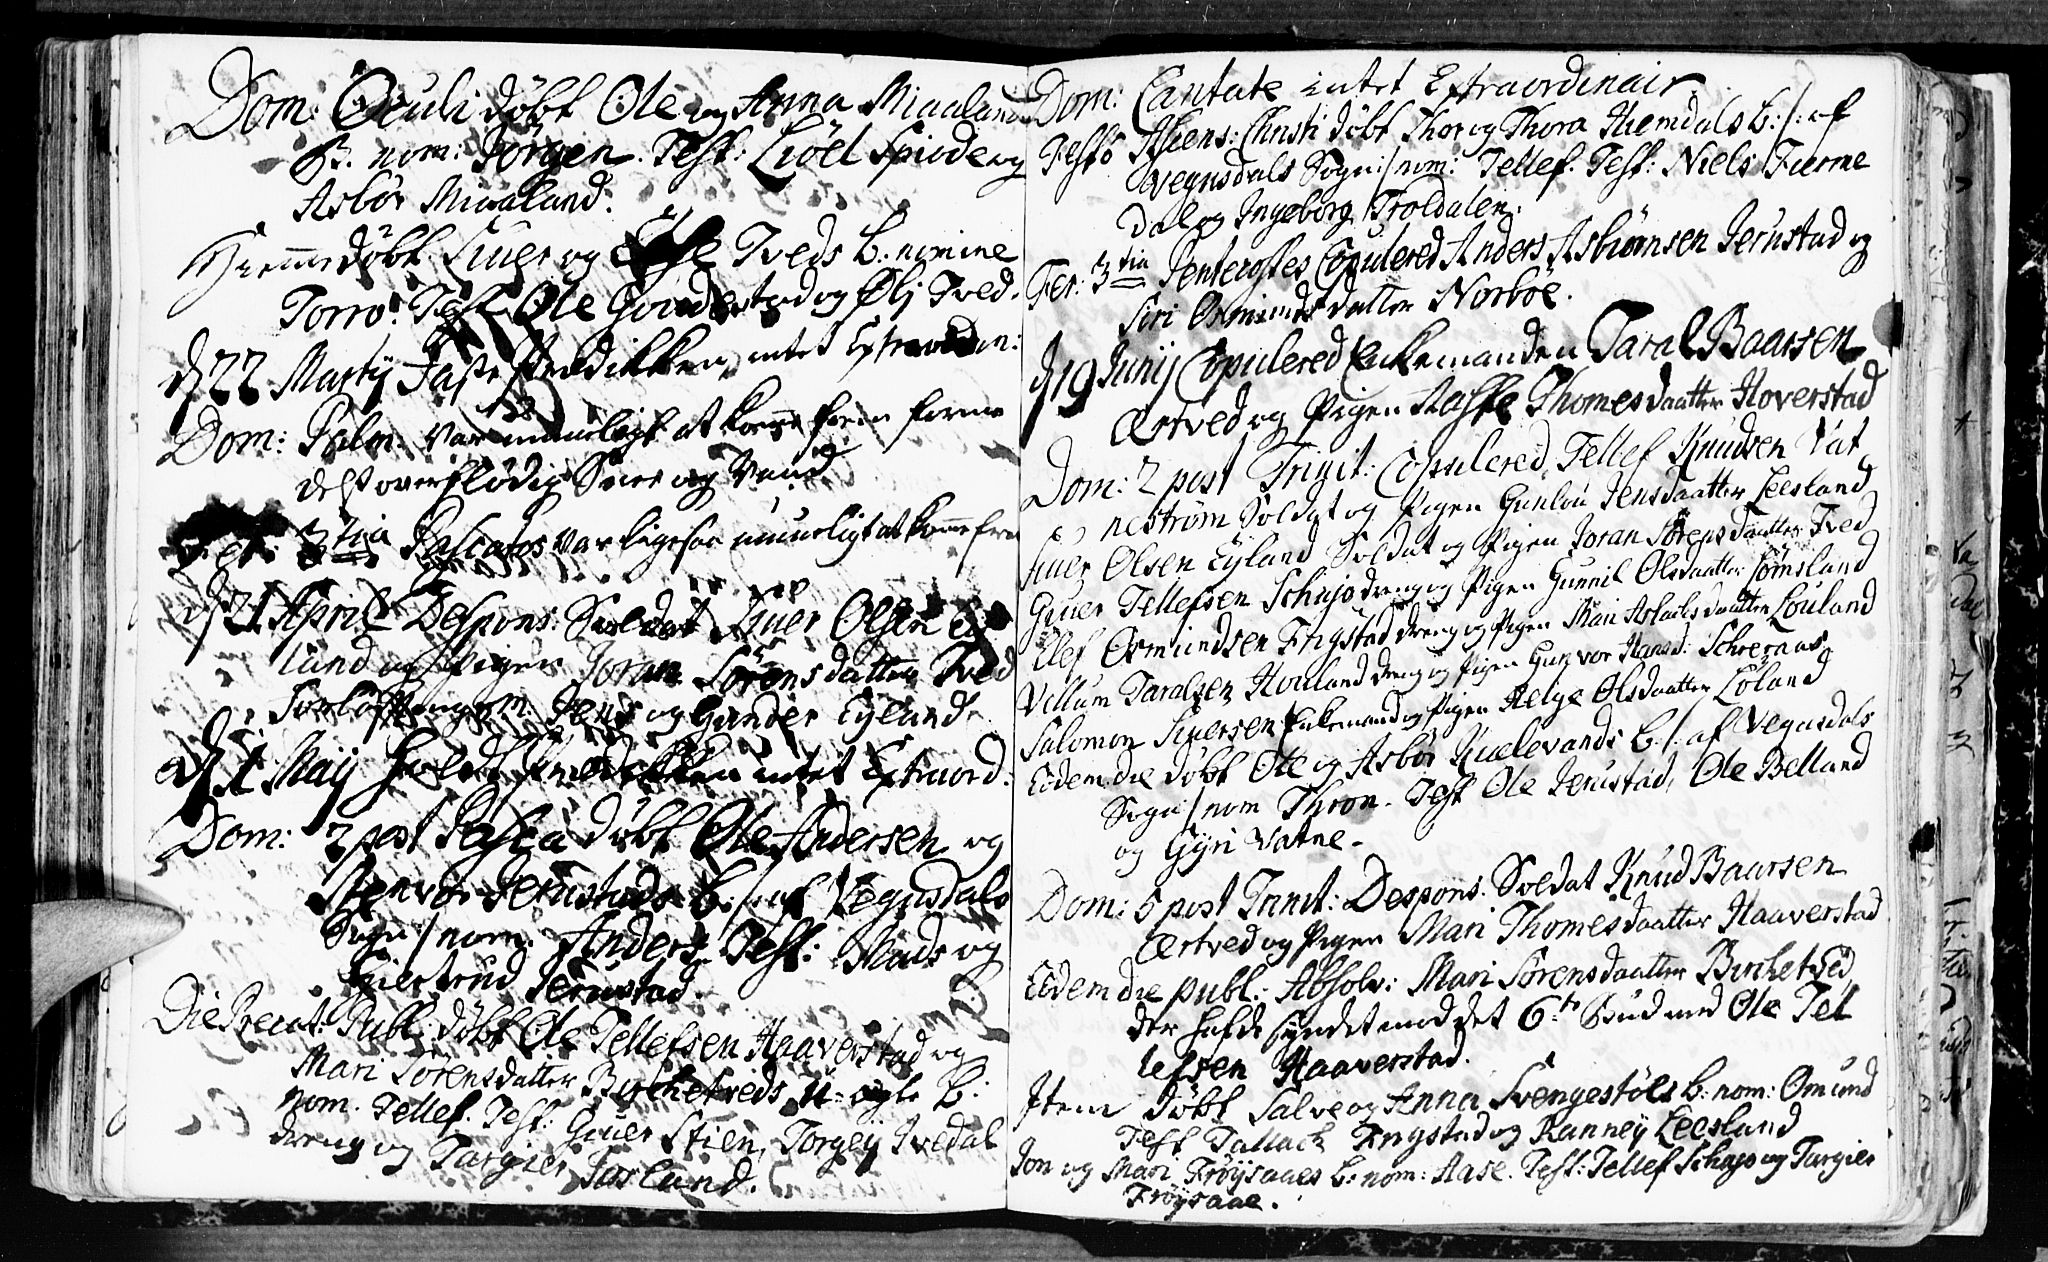 Dom: Oculi döbt Ole og Anna Miaalands
B. nom: Jörgen. Test: Liöel Spiode og
Asbör Miaaland.
Hiemme döbt Siuer og Tveds b: nomine
Torro. Test Ole Goudestad og Öli Tved.
d 22 Martij Faste Prædikken intet Extraordin:
Dom: Palm. var umueligt at komme frem formedelst overflödig Snee og Vand
Fer: 3tia Paschatos var ligesaa umueligt at komme frem
d 21 April Despons: Soldat Siuer Olsen Ey
lund og Pigen Joran Sörens datter Tved
Forlöftningsm. Jens og Gunder Eyland
d 1 Maij holdt Prædikken intet Extraord:
Dom: 2 post Pascha döbt Ole Andersen og
Stenvor Jerustads b: /: af Vegusdals
Sogn / nom. Anders. Test: Mads og
Giertrud Jerustad.
Die Precat: Publ: döbt Ole Tellefsen Haaverstad og
Mari Sörensdatter Birchetveds u-ægte B:
nom. Tellef. Test: Giuer Stien, Torgey Ivedal
dreng og Targier Torland.
Dom: Cantate intet Extraordinair.
Festo Ascens: Christi döbt Thor og Thora Hiemdals b: /: af
Vegusdals Sogn: / nom: Tellef. Test: Niels Furme
dal og Ingeborg Troldalen.
Fer: 3tia Pentecostes Copulered Anders Asbiörnsen Jerustad og
Siri Osmunds datter Norböe.
d 19 Junij Copulered Enkemanden Taral Baarsen
Ærtved og Pigen Aaste Thomesdaatter Hoverstad
Dom: 2 post Trinit: Copulered Tellef Knudsen Vat
neström Soldat og Pigen Gunlou Jensdaatter Leesland
Siuer Olsen Eyland Soldat og Pigen Joran Sörens Daatter Tved
Giuer Tellefsen Schajo dreng og Pigen Gunnil Olsdaatter Tömsland
Ellef Osmundsen Frigstad dreng og Pigen Mari Aslachsdaatter Louland
Vellum Taralsen Houland dreng og Pigen Gunvor Hansd: Schreraas
Salomon Siuersen Enkemand og Pigen Helge Olsdaatter Löland
Eodem die döbt Ole og Asbör Kuelevands b /: af Vegusdals
Sogn / nom Thron. Test Ole Jerustad, Ole Belland
og Gyri Vatne.
Dom: 5 post Trinit: Despons: Soldat Knud Baarsen
Ærtved og Pigen Mari Thomesdaatter Haaverstad
Eodem die publ: Absolv: Mari Sörensdaatter Birchetved
der hafde syndet mod det 6te Bud med Ole Tel
lefsen Haaverstad.
Item döbt Salve og Anna Svengestöls b: nom: Omund
Test Tallack Frigstad og Ranney Leesland
Jon og Mari Fröysaaes b: nom: Aase. Test: Tellef Schajo og Targier
Fröysaae.